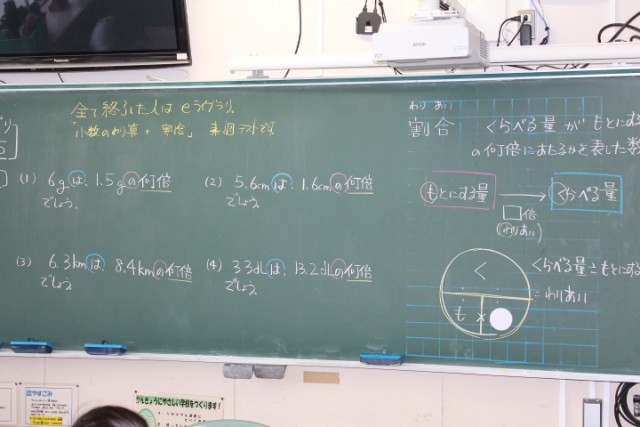 Panasonic
EPSON
全て終了した人は eライブラリ
「小数のわり算 + 割合」 来週テストです
(1) 6gは、1.5gの何倍
でしょう。
(2) 5.6cmは、1.6cmの何倍
でしょう。
(3) 6.3kmは、8.4kmの何倍
でしょう。
(4) 33dLは、13.2dLの何倍
でしょう。
わりあい
割合 くらべる量が もとにする
の何倍にあたるかを表した数
もとにする量
くらべる量
□倍
(わりあい)
く
も ×
くらべる量÷もとにする
=わりあい